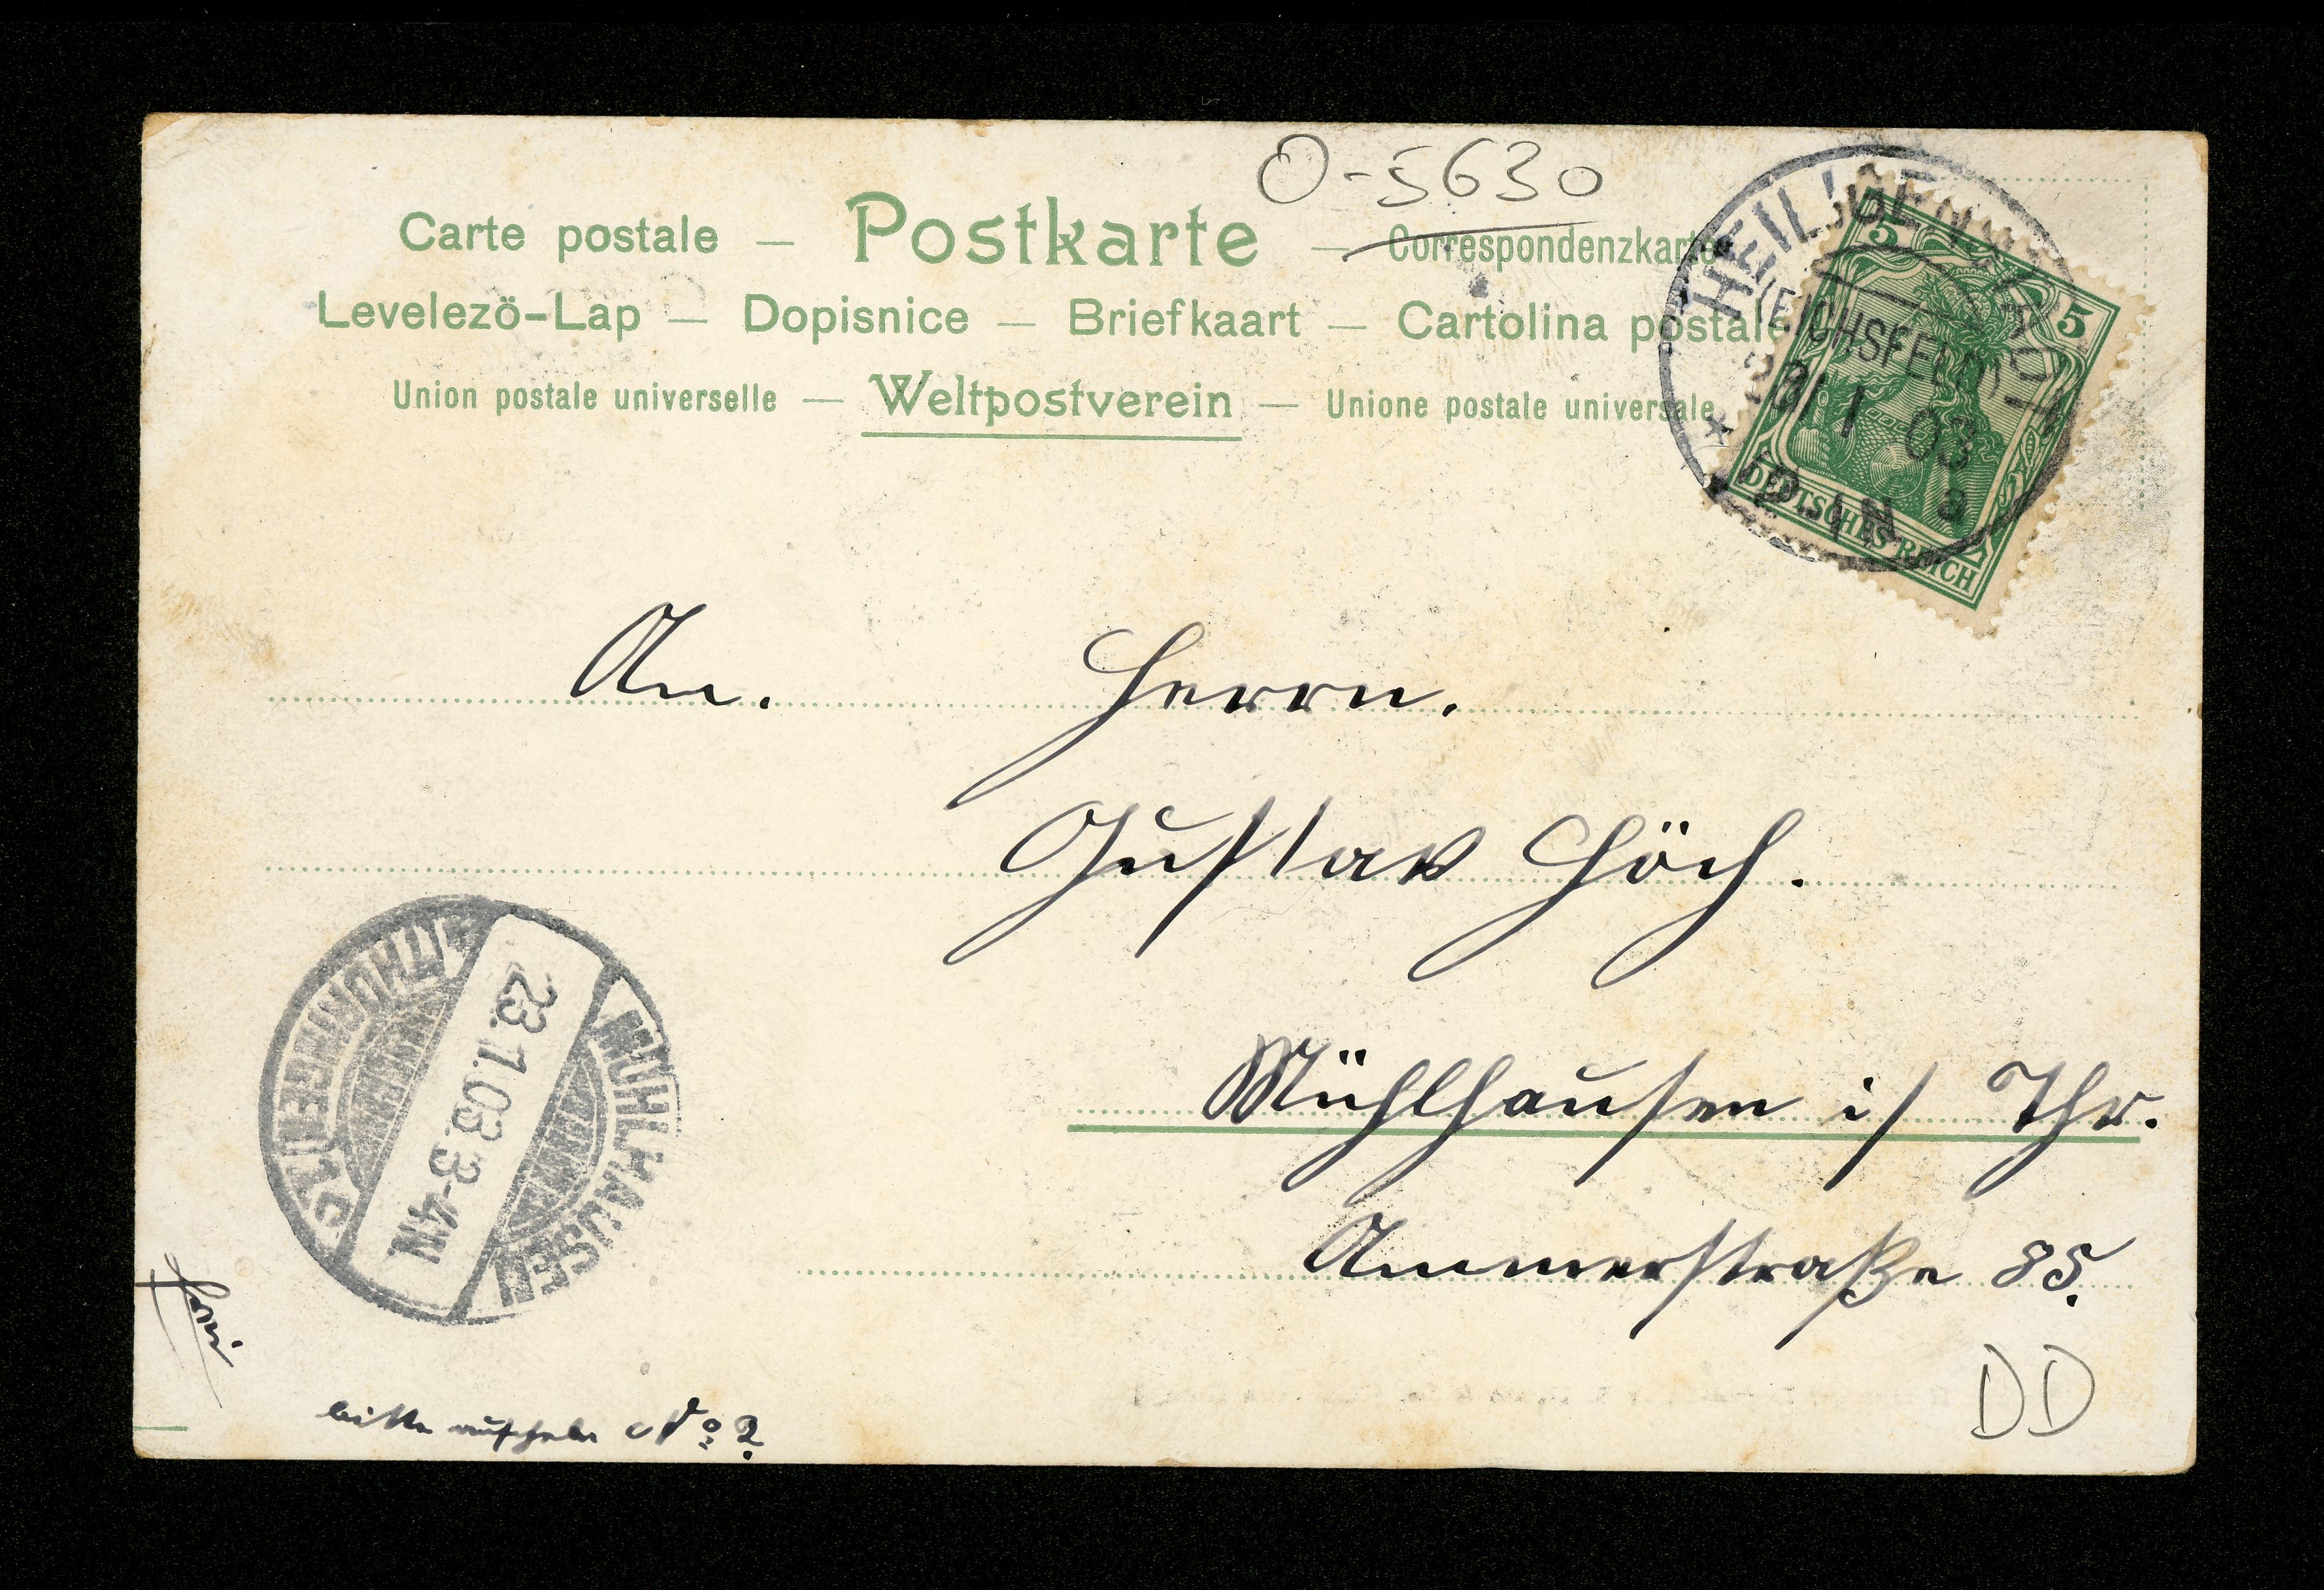 O-5630
Carte postale — Postkarte — Correspondenzkarte
Levelezö-Lap — Dopisnice — Briefkaart — Cartolina postale
Union postale universelle — Weltpostverein — Unione postale universale
HEILIGENSTADT
(EICHSFELD)
5 5
23 1 03
a
DEUTSCHES REICH
An. Herrn.
Gustav Höch.
Mühlhausen i/ Thr.
Ammerstraße 85.
MÜHLHAUSEN
23.1.03.3-4N
(THÜRINGEN) 1c
bitte aufheben No 2.
DD